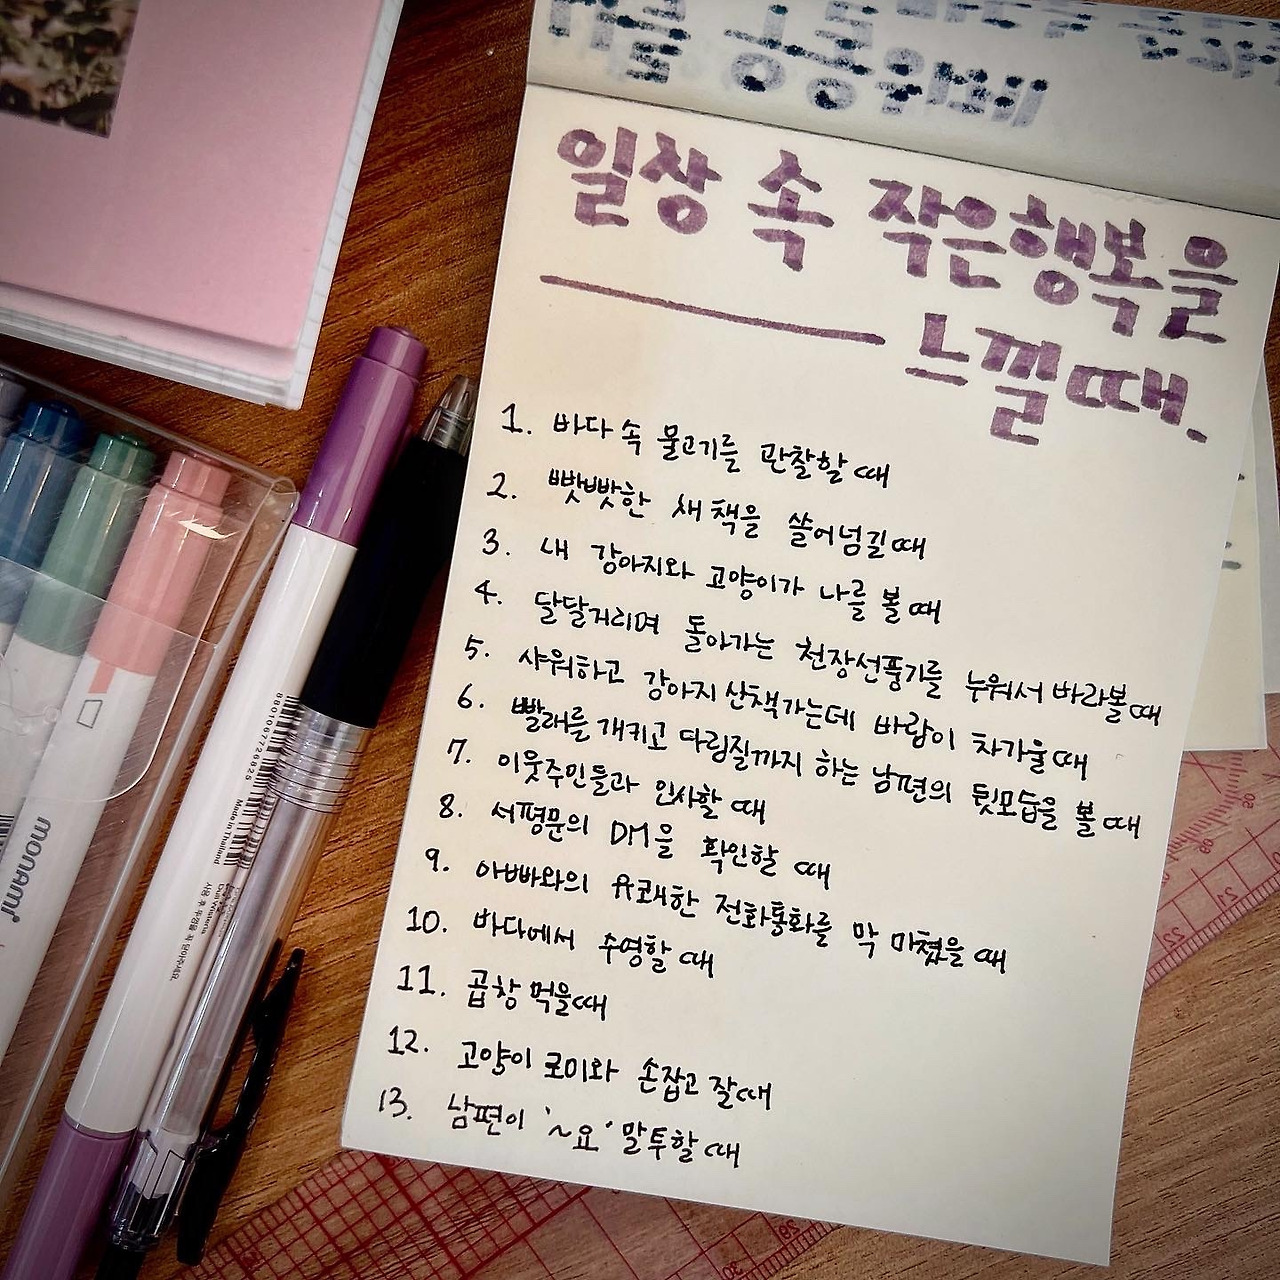 일상 속 작은행복을
느낄때.
1. 바다 속 물고기를 관찰할 때
2. 빳빳한 새 책을 쓸어넘길 때
3. 내 강아지와 고양이가 나를 볼 때
4. 달달거리며 돌아가는 천장선풍기를 누워서 바라볼 때
5. 샤워하고 강아지 산책가는데 바람이 차가울 때
6. 빨래를 개키고 다림질까지 하는 남편의 뒷모습을 볼 때
7. 이웃주민들과 인사할 때
8. 서평문의 DM을 확인할 때
9. 아빠와의 유쾌한 전화통화를 막 마쳤을 때
10. 바다에서 수영할 때
11. 곱창 먹을때
12. 고양이 로미와 손잡고 잘때
13. 남편이 '~요' 말투할 때
monami
8801067726825
Made in Thailand
Dull Wisteria
사용 후 뚜껑을 꼭 닫아주세요.